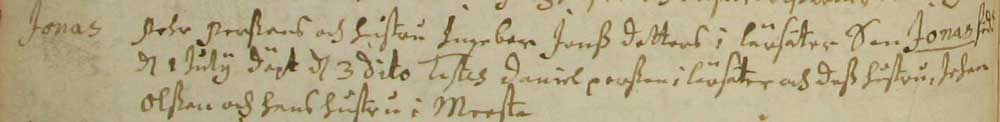 Jonas Pehr Perssons och hustru Ingeber Jonß dotters i lärsäter Son Jonas född
d 1 July döpt d 3 dito Testes Daniel persson i lärsäter och deß hustru, Johan
Olsson och hans hustru i